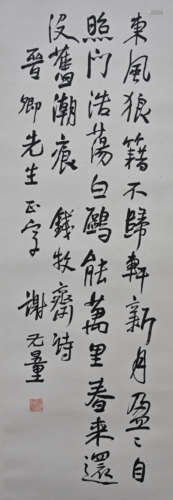 東風狼籍不歸軒新月盈〻自
照門浩蕩白鷗能萬里春来還
沒舊潮痕 錢牧齋詩
晉卿先生正字 謝无量